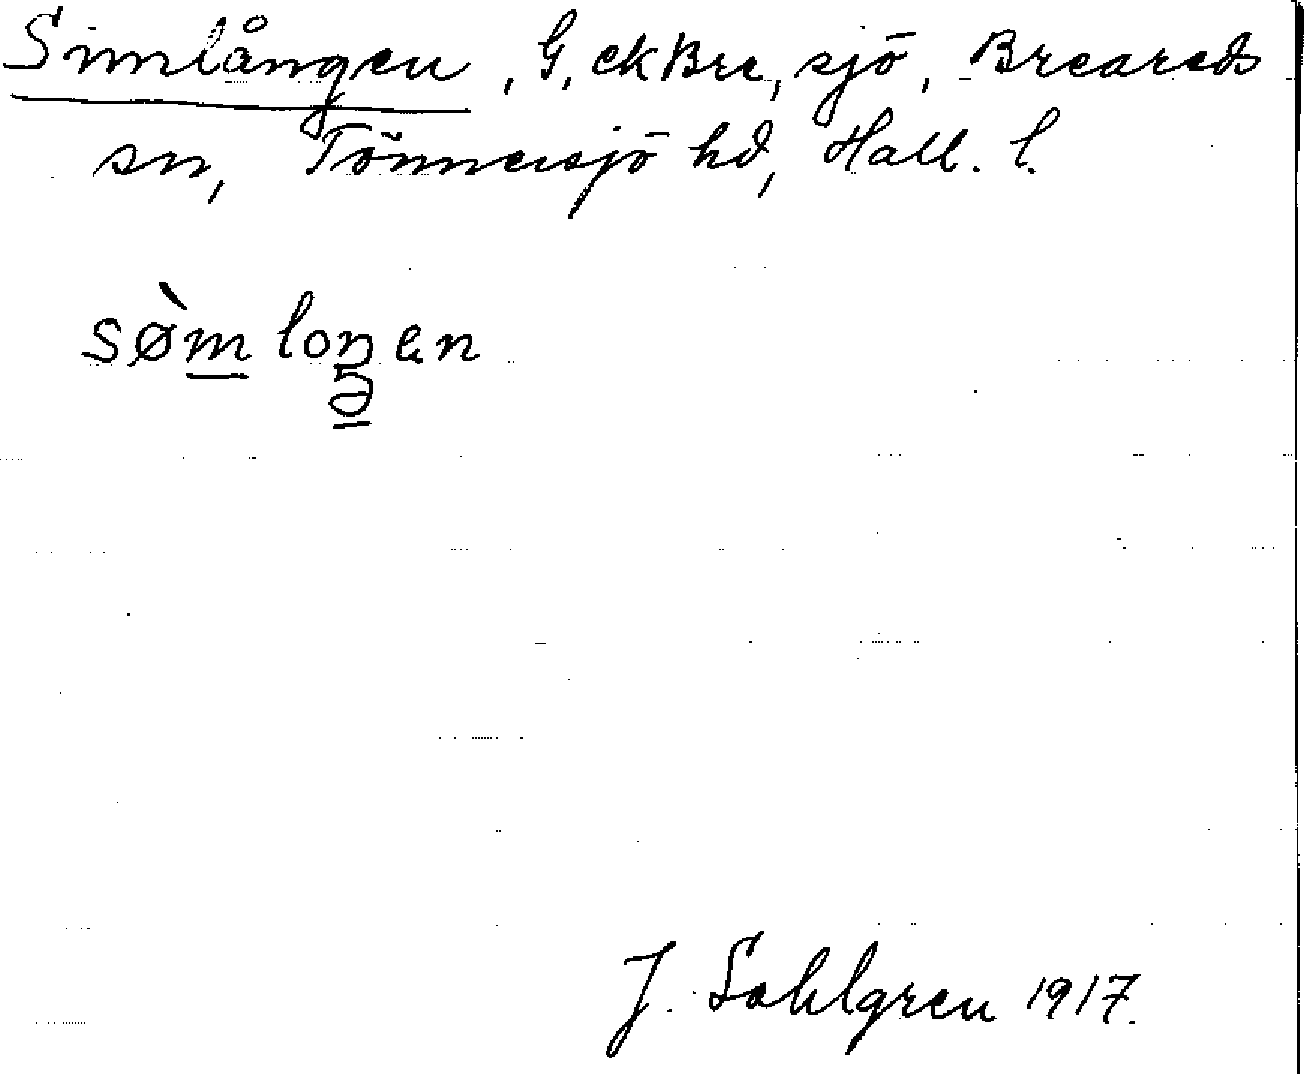 Simlången, G, ekBre, sjö, Breareds
sn, Tönnersjö hd, Hall. l.
sø̀m loŋen
J. Sahlgren 1917.